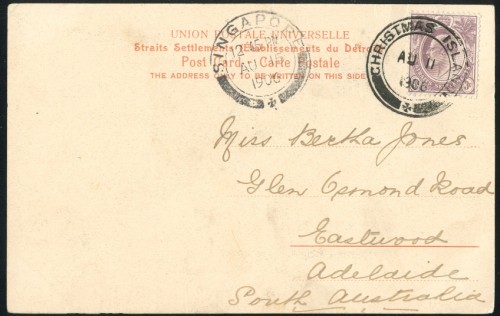 UNION POSTALE UNIVERSELLE
Straits Settlements (Établissements du Détroit
Post Card - Carte Postale
THE ADDRESS ONLY TO BE WRITTEN ON THIS SIDE
SINGAPORE
12 45 PM
AU
1906
CHRISTMAS ISLAND
AU 11
1906
Miss Bertha Jones
Glen Osmond Road
Eastwood
Adelaide
South Australia